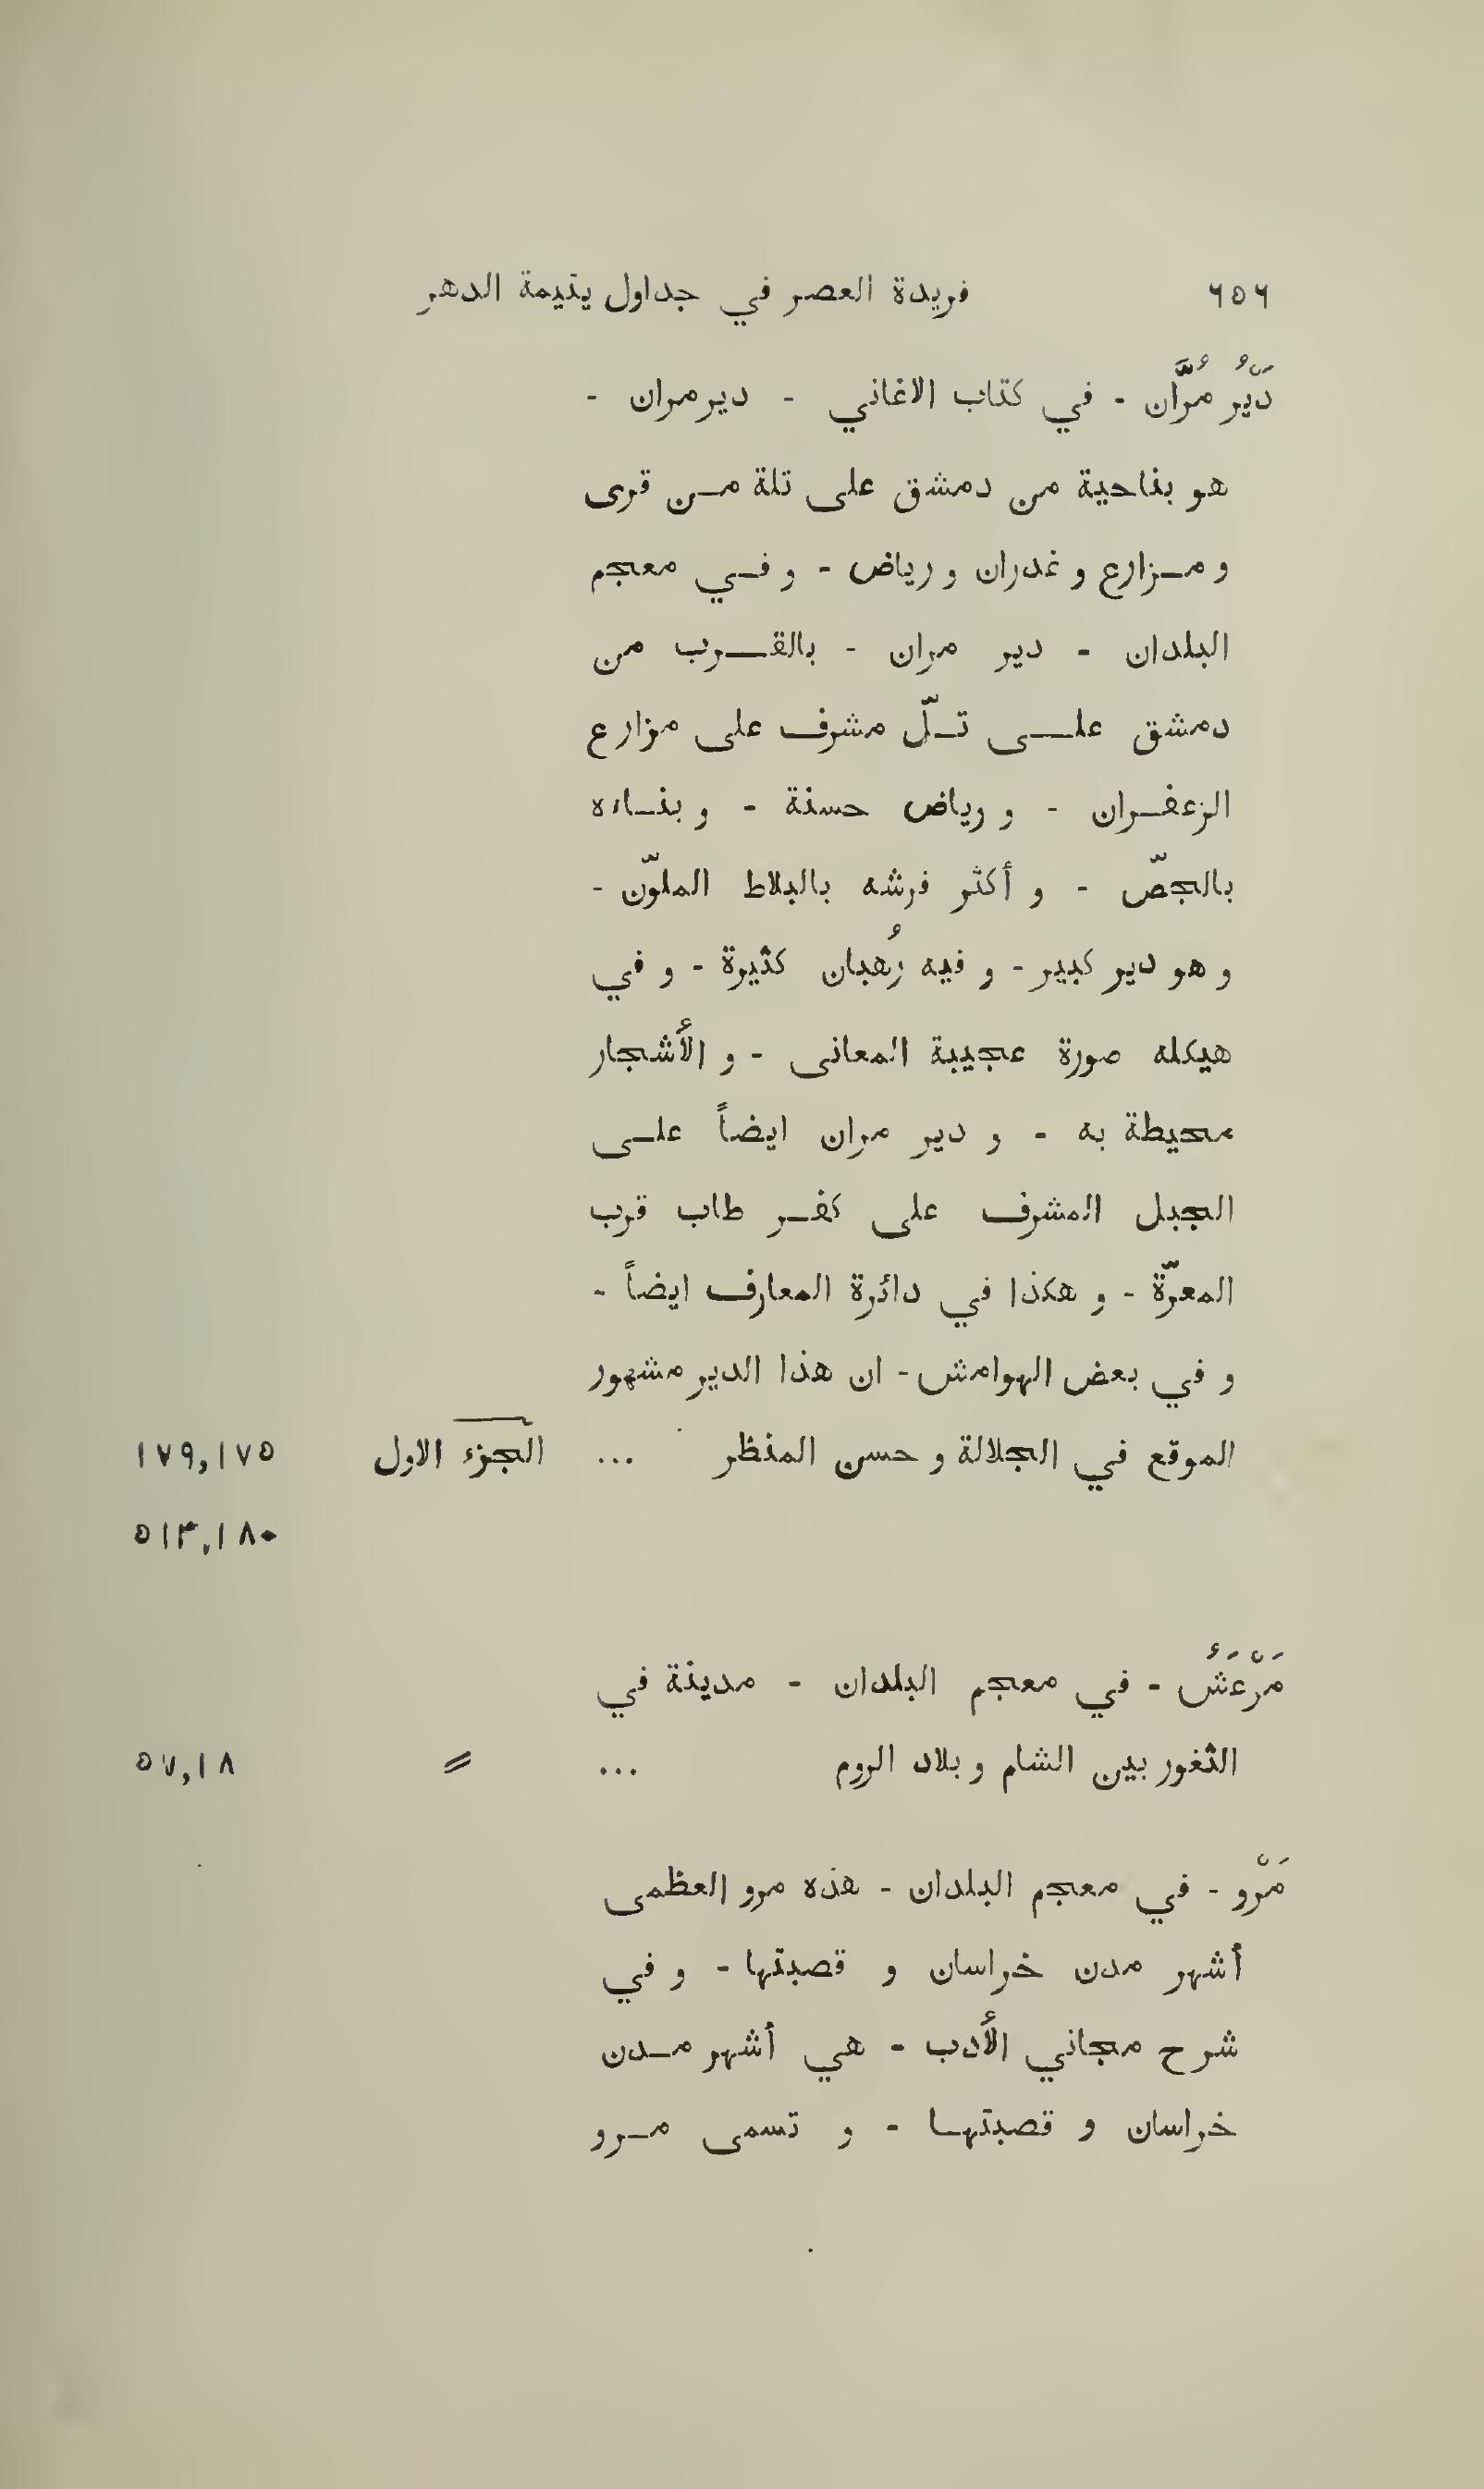 ٦٥٦ فريدة العصر في جداول يتيمة الدهر
دَيْرُ مُرَّان - في كتاب الاغاني - ديرمران -
هو بناحية من دمشق على تلة مـن قرى
و مـزارع و غدران و رياض - و فـي معجم
البلدان - دير مران - بالقـرب من
دمشق علـى تـلّ مشرف على مزارع
الزعفـران - و رياض حسنة - و بنـاءه
بالجصّ - و أكثر فرشه بالبلاط الملوّن -
و هو دير كبير - و فيه رُهبان كثيرة - و في
هيكله صورة عجيبة المعانى - و الأشجار
محيطة به - و دير مران ايضاً علـى
الجبل المشرف على كفـر طاب قرب
المعرّة - و هكذا في دائرة المعارف ايضاً -
و في بعض الهوامش - ان هذا الدير مشهور
الموقع في الجلالة و حسن المنظر ... الجزء الاول ١٧٩,١٧٥
٥١٣,١٨٠
مَرْعَشُ - في معجم البلدان - مدينة في
الثغور بين الشام و بلاد الروم ... 〃 ٥٧,١٨
مَرْو - في معجم البلدان - هذه مرو العظمى
أشهر مدن خراسان و قصبتها - و في
شرح مجاني الأدب - هي أشهر مـدن
خراسان و قصبتهـا - و تسمى مـرو